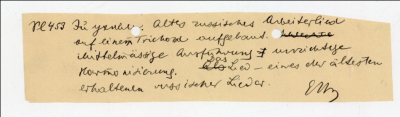 Pl 453 Ey ychnem. Altes russisches Arbeiterlied
auf einem Trichord aufgebaut.
Mittelmässige Ausführung & unrichtige
Harmonisierung. Das Lied – eines der ältesten
erhaltenen russischer Lieder.